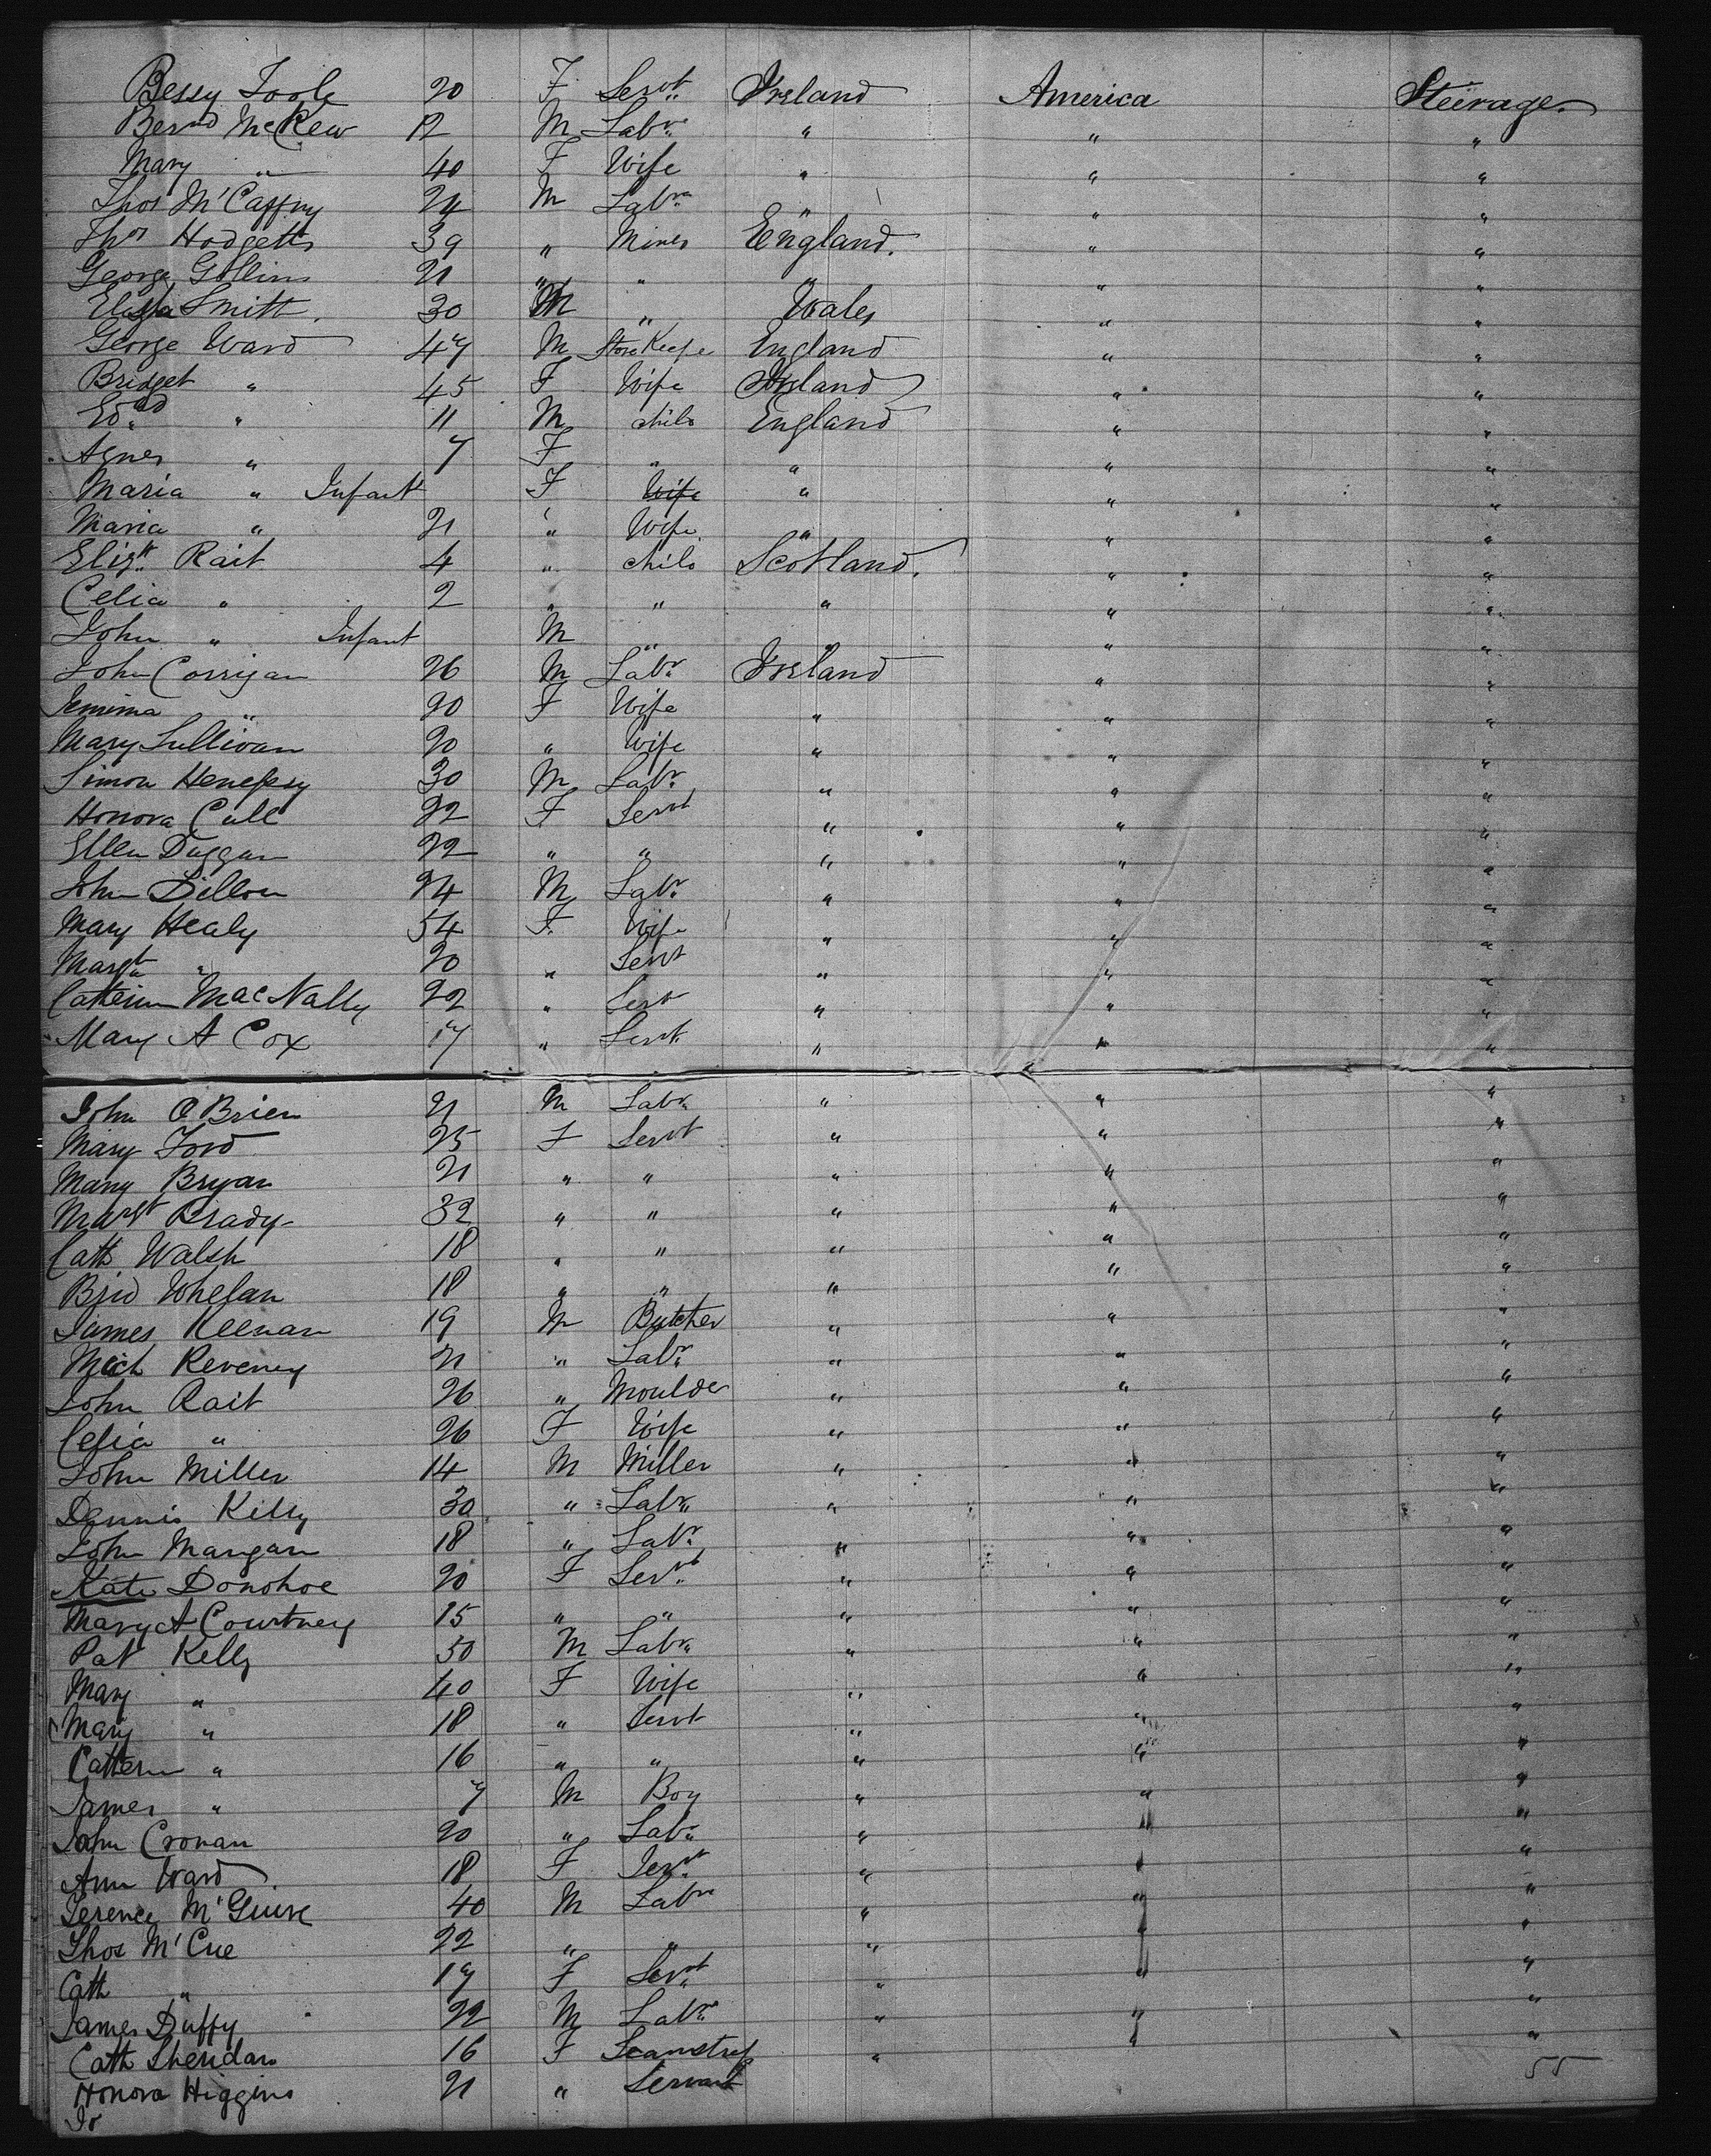 Bessy Toole 20 F Servt Ireland America Steerage
Bernd McKew 12 M Labr " " "
Mary " 40 F Wife " " "
Thos M'Caffry 24 M Labr " " "
Thos Hodgetts 39 " Miner England. " "
George Gollins 21 " " " " "
Smitt. 30 M " Wales " "
George Ward 47 M Store Keepe England " "
Bridget " 45 F Wife Ireland " "
Edwd " 11 M child England " "
Agnes " 7 F " " " "
Maria " Infant F Wife " " "
Maria " 21 " Wife " " "
Elizth Rait 4 " child Scotland. " "
Celia " 2 " " " " "
John " Infant M " " " "
John Corrigan 26 M Labr Ireland " "
Jemima " 20 F Wife " " "
Mary Sullivan 20 " Wife " " "
Simon Henessy 30 M Labr " " "
Honora Cull 22 F Servt " " "
Ellen Duggan 22 " " " " "
John Dillon 24 M Labr " " "
Mary Healy 54 F Wife " " "
Margt " 20 " Servt " " "
Catherin MacNally 22 " Servt " " "
Mary A Cox 17 " Servt " " "
John O Brien 21 M Labr " " "
Mary Ford 25 F Servt " " "
Mary Bryan 21 " " " " "
Margt Brady 32 " " " " "
Cath Walsh 18 " " " " "
Brid Whelan 18 " " " " "
James Keenan 19 M Butcher " " "
Mich Reveney 21 " Labr " " "
John Rait 26 " Moulder " " "
Celia " 26 F Wife " " "
John Miller 14 M Miller " " "
Dennis Kelly 30 " Labr " " "
John Mangan 18 " Labr " " "
Kate Donohoe 20 F Servt " " "
Mary A Courtney 15 " " " " "
Pat Kelly 50 M Labr " " "
Mary " 40 F Wife " " "
Mary " 18 " Servt " " "
Catherin " 16 " " " " "
James " 7 M Boy " " "
John Cronan 20 " Labr " " "
Ann Ward 18 F Servt " " "
Terence M'Guire 40 M Labr " " "
Thos M'Cue 22 " " " " "
Cath " 17 F Servt " " "
James Duffy 22 M Labr " " "
Cath Sheridan 16 F Seamstress " " "
Honora Higgins 21 " Servant 55